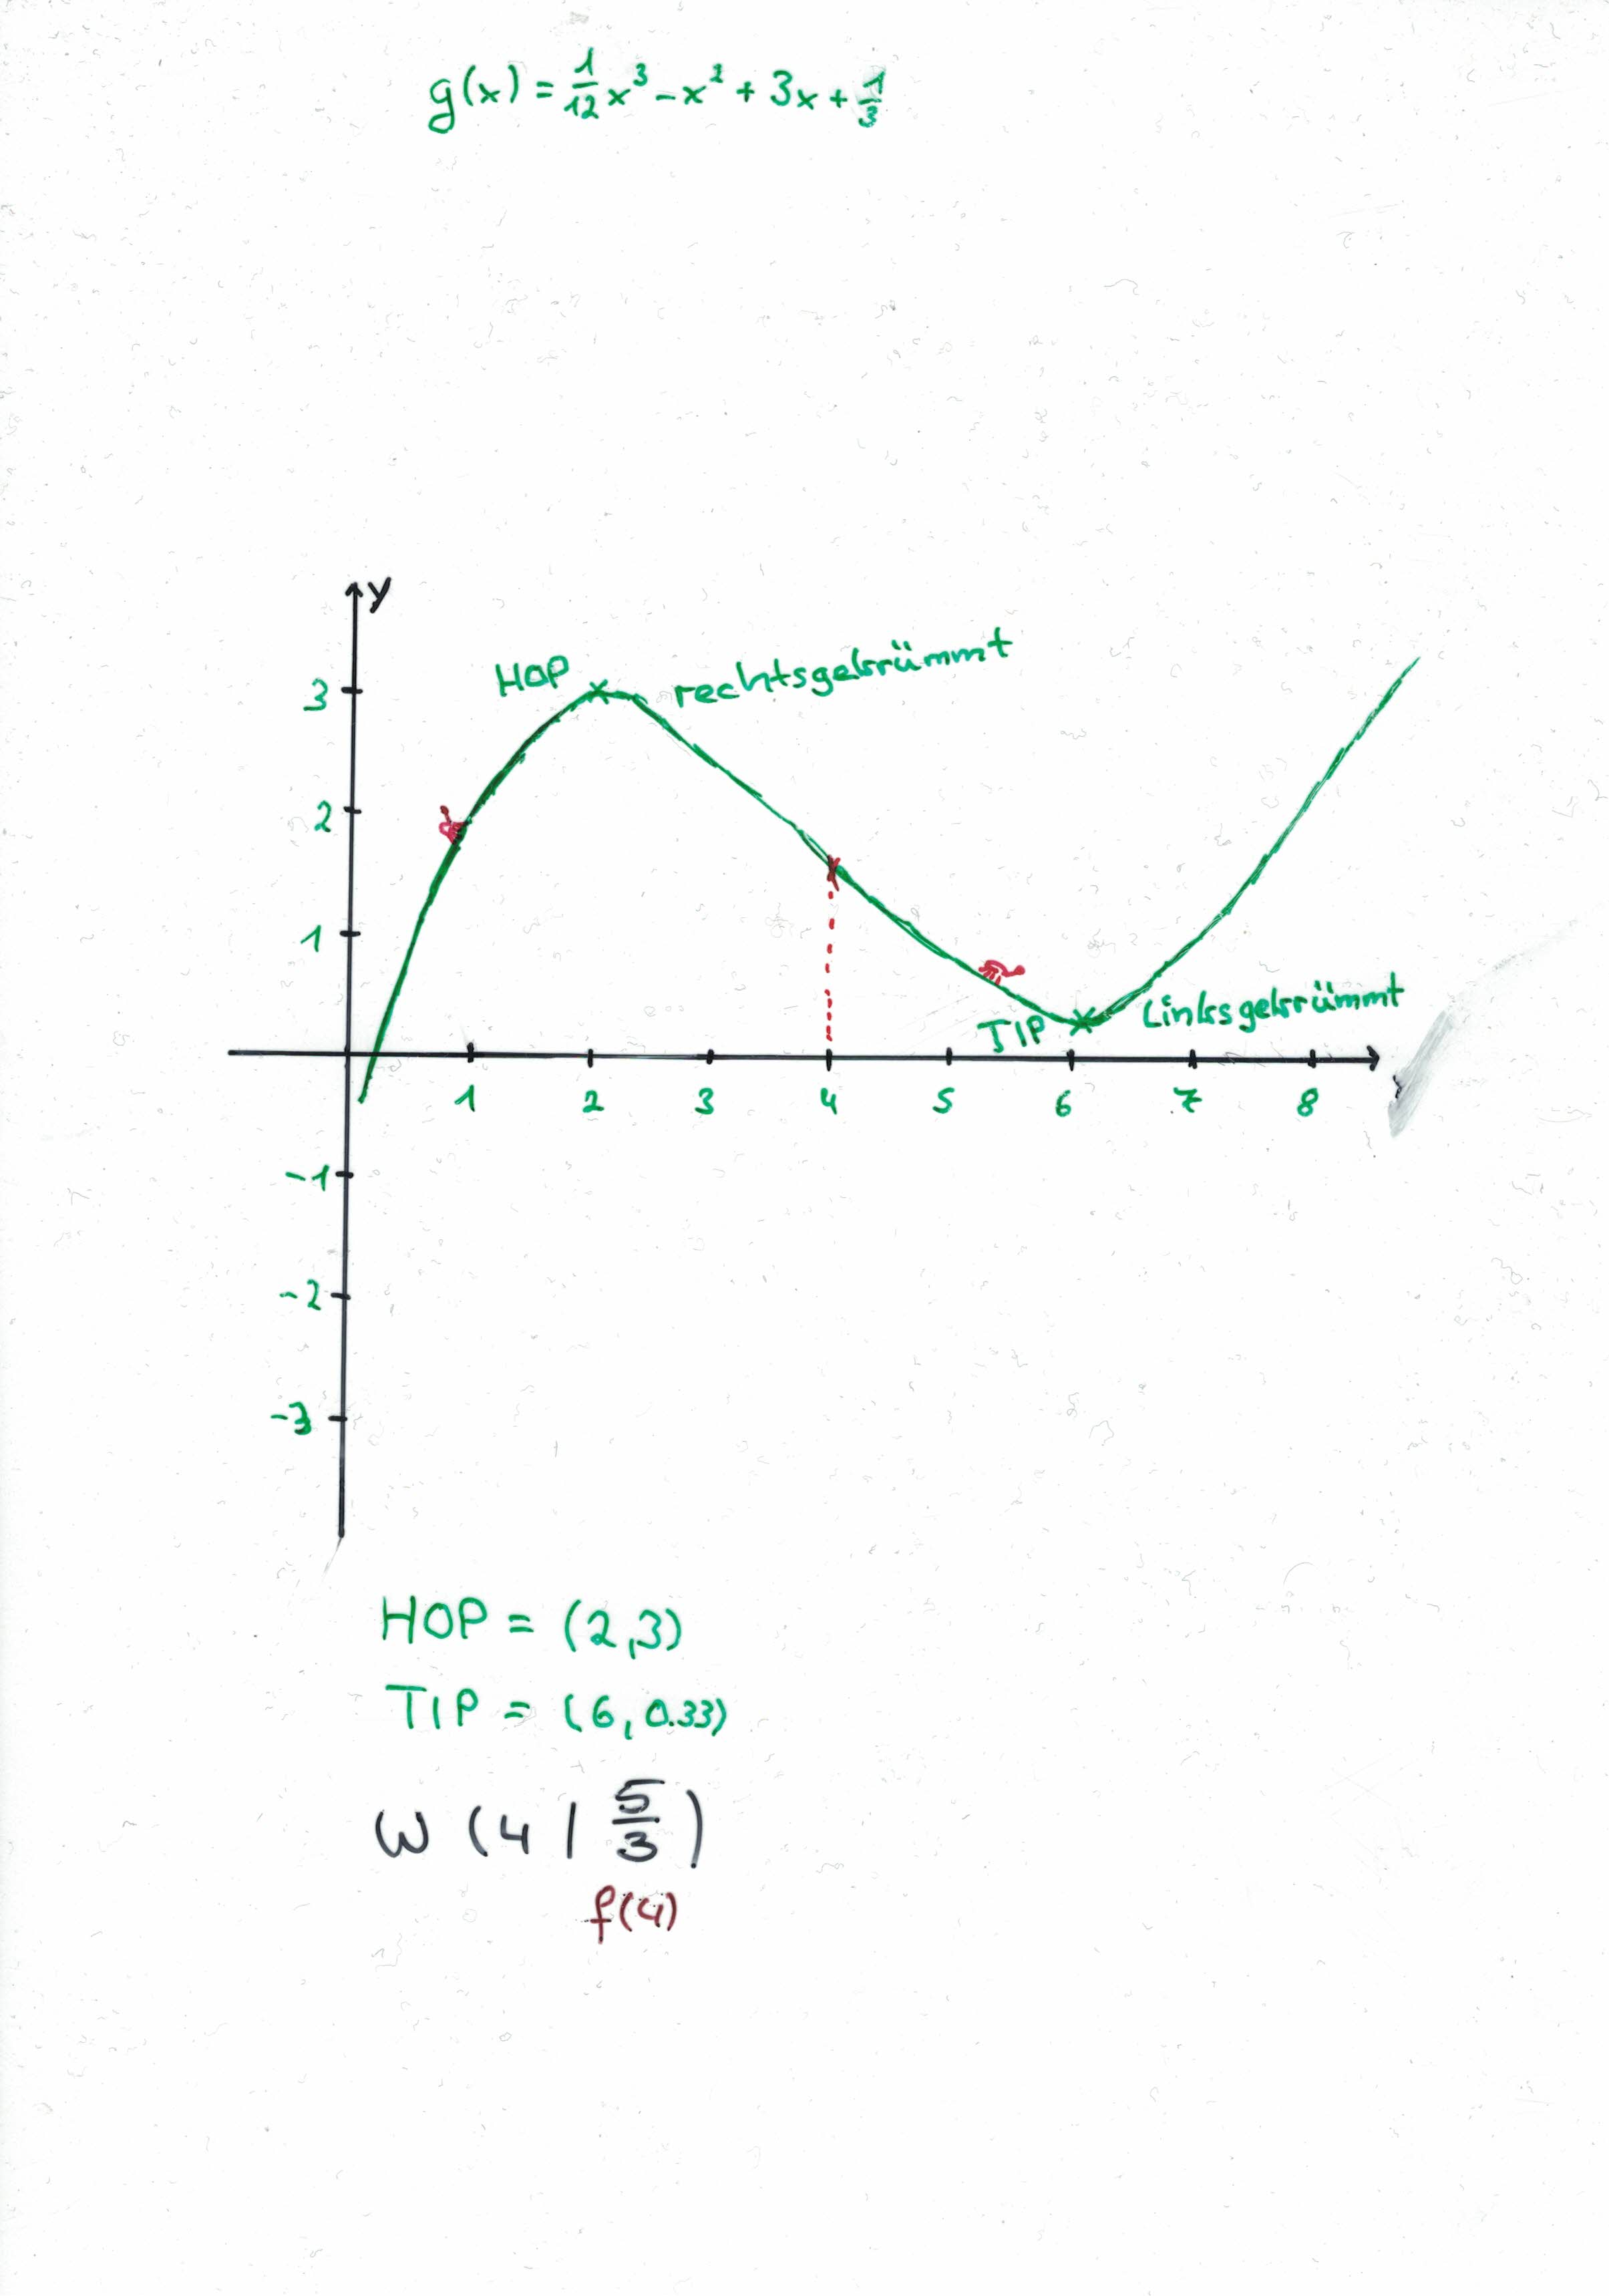 g(x) = 1/12 x³ - x² + 3x + 1/3
y
HOP rechtsgekrümmt
3
2
1
TIP Linksgekrümmt
1 2 3 4 5 6 7 8
-1
-2
-3
HOP = (2,3)
TIP = (6, 0.33)
W (4 | 5/3)
f(4)